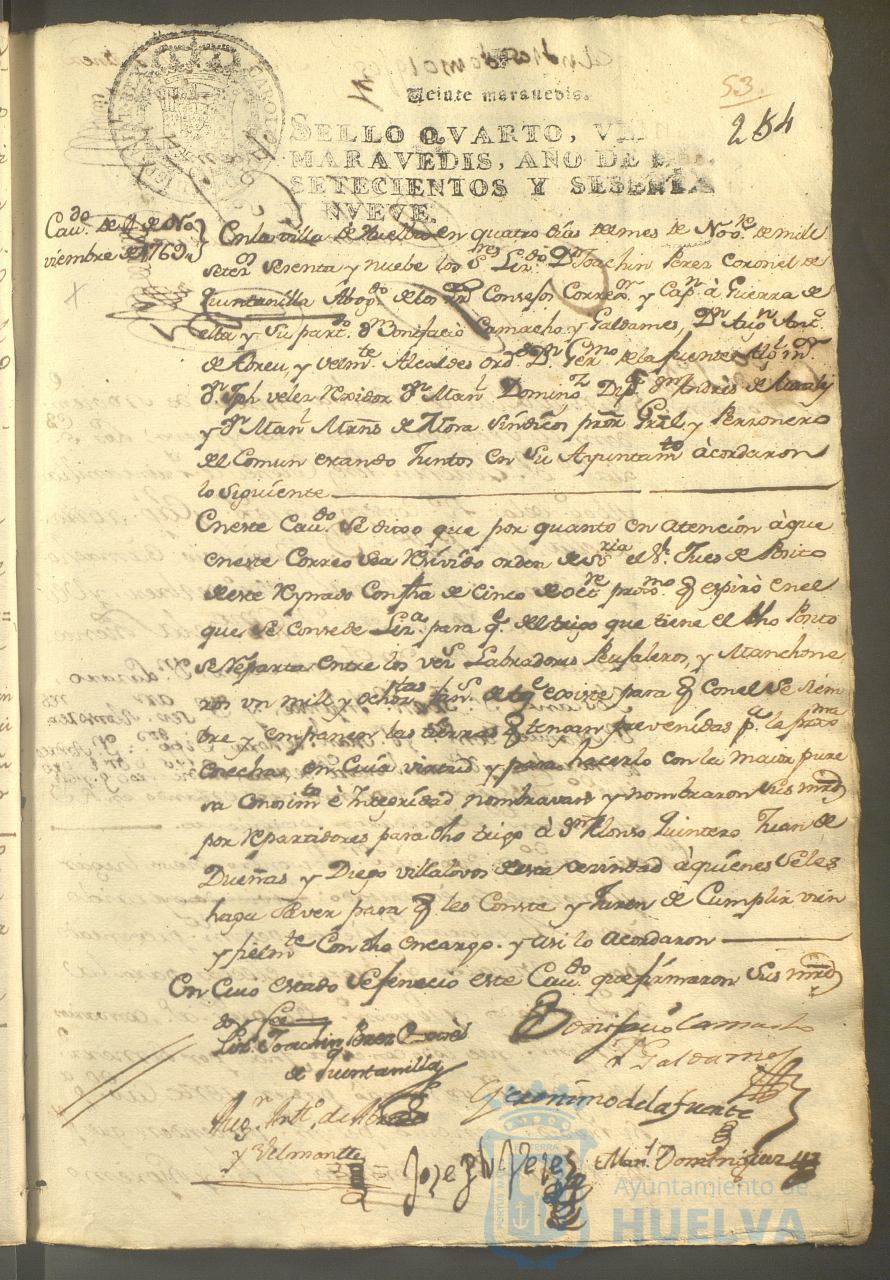 Veinte maravedis.
53.
254
SELLO QVARTO, VEI
MARAVEDIS, AÑO DE
SETECIENTOS Y SESENTA
NVEVE.
Cavdo. de 4 de No
viembre de 1769
En la villa de Huelba en quatro dias del mes de Nove. de mill
setecs. sesenta y nuebe los Sres. Lizdo. Dn. Joachin Perez Coronel de
Quintanilla Abogdo. de los Rs. Consejos Correxor. y Capn. à Guerra de
ella y su partdo. Dn. Bonifacio Camacho y Galdames, Dn. Augn. Antto.
de Abreu, y velmte. Alcaldes ordos. Dn. Germo. de la fuente
Dn. Jph velez Rexidor Dn. Manl. Domingz. Dipdo. Dn. Andres de
y Dn. Manl. Mrnz. de Mora Sindicos pror. Gral. y Perzonero
del Comun estando Juntos en su Ayuntamto. àcordaron
lo siguiente
En este Cavdo. se dixo que por quanto en atención à que
en este Correo sea Rezivido orden de Sria. el Sr. Jues de Posito
de este Reynado Con fha de Cinco de Octe. proxmo. q espirò en el
que se consede Liza. para qe. del trigo que tiene el dho Posito
se reparta entre los vezs. Labradores Pensaleros, y Manchone
ros un mill y ochotas. fans. de tgo. existe para q con el se siem
bre y empanen las tierras q tengan prevenidas pa. la proxma.
Cosecha, en Cuia virtud y para hacerlo con la maior pure
sa Conosimto. è Integridad nombravan y nombraron sus mrds
por Repartidores para dho trigo à Dn. Alonso Quintero Juan de
Dueñas y Diego villalovos de esta vesindad à quienes se les
haga saver para q les Conste y Juren de Cumplir vien
y fielmte. Con dho encargo. y asi lo acordaron
En Cuio estado se fenecio este Cavdo. que firmaron sus mrds
doy fee
Liz. Joachin Perez Coronel
de Quintanilla
Bonifacio Camacho
y Galdames
Augn. Antto. de Abreu
y Velmonte
Geronimo de la fuente
Joseph Velez
Manl. Dominguez
Ayuntamiento de
HUELVA